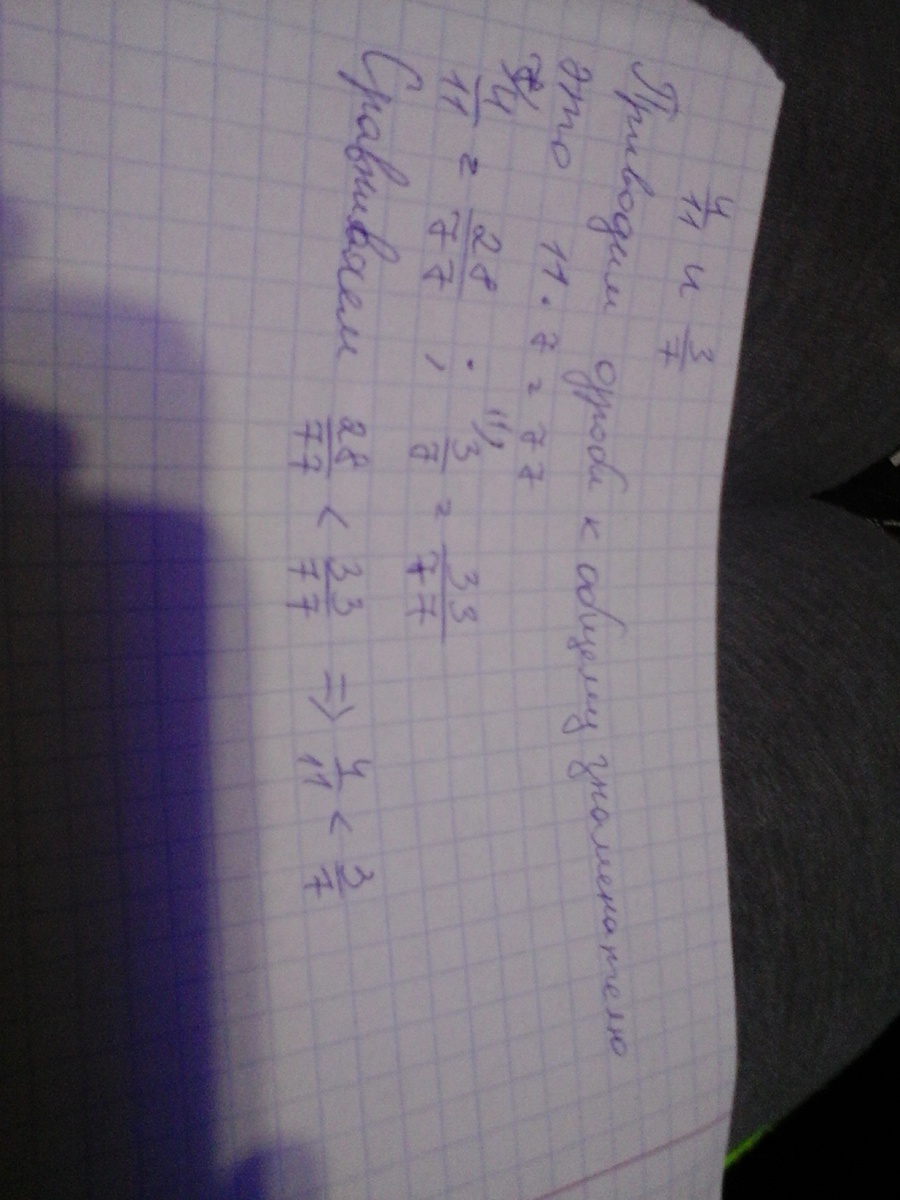 4/11 и 3/7
Приводим дроби к общему знаменателю
это 11 · 7 = 77
7) 4/11 = 28/77 ; 11) 3/7 = 33/77
Сравниваем 28/77 < 33/77 => 4/11 < 3/7